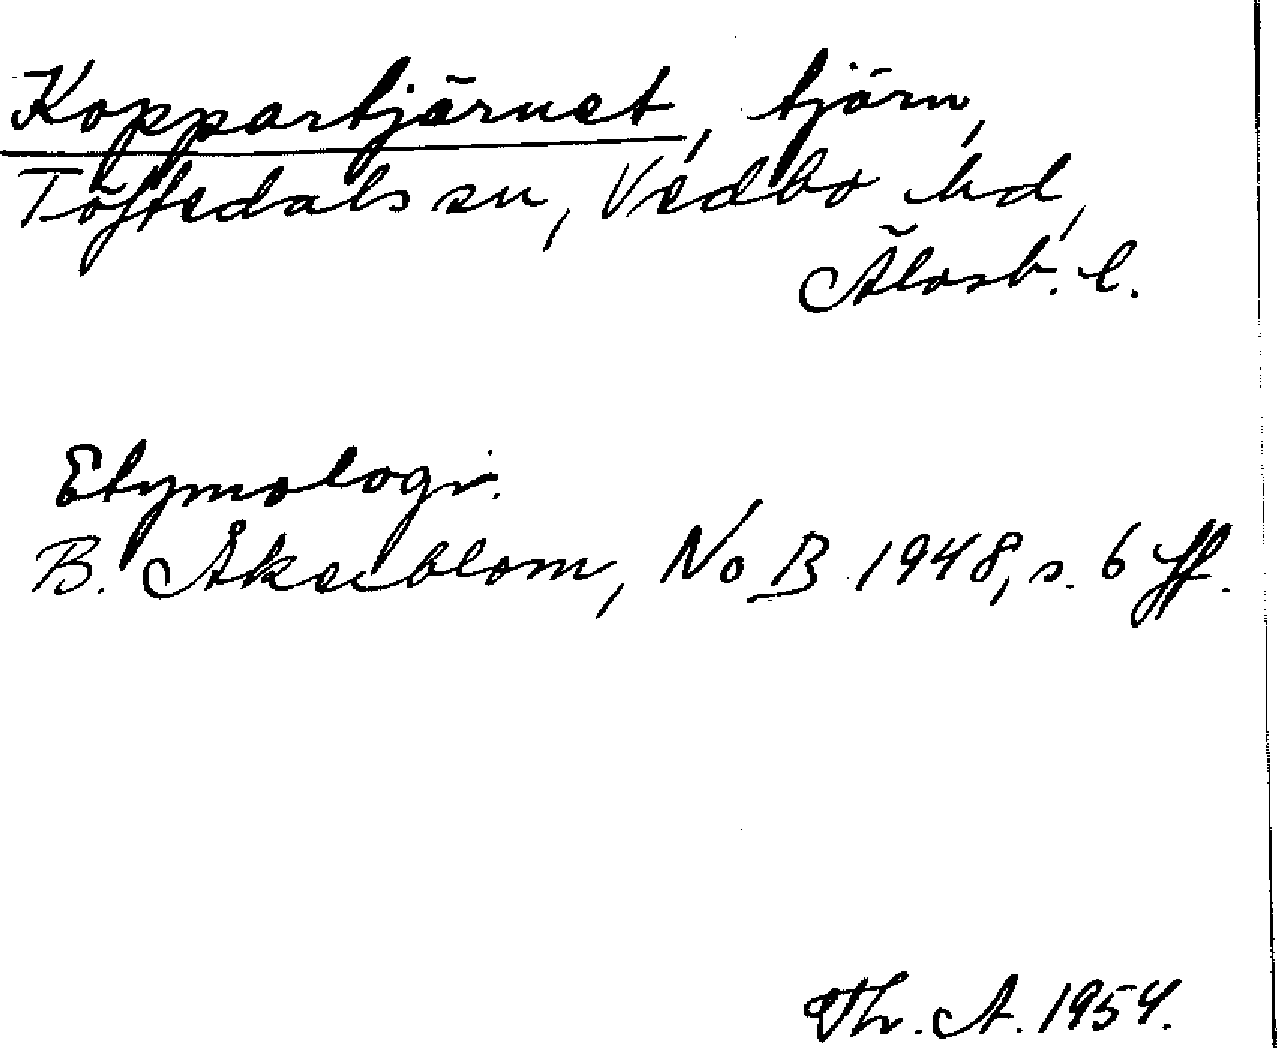 Koppartjärnet, tjärn,
Töftedals sn, Vedbo hd,
Älvsb. l.
Etymologi.
B. Åkerblom, NoB 1948, s. 6 ff.
Th. A. 1954.